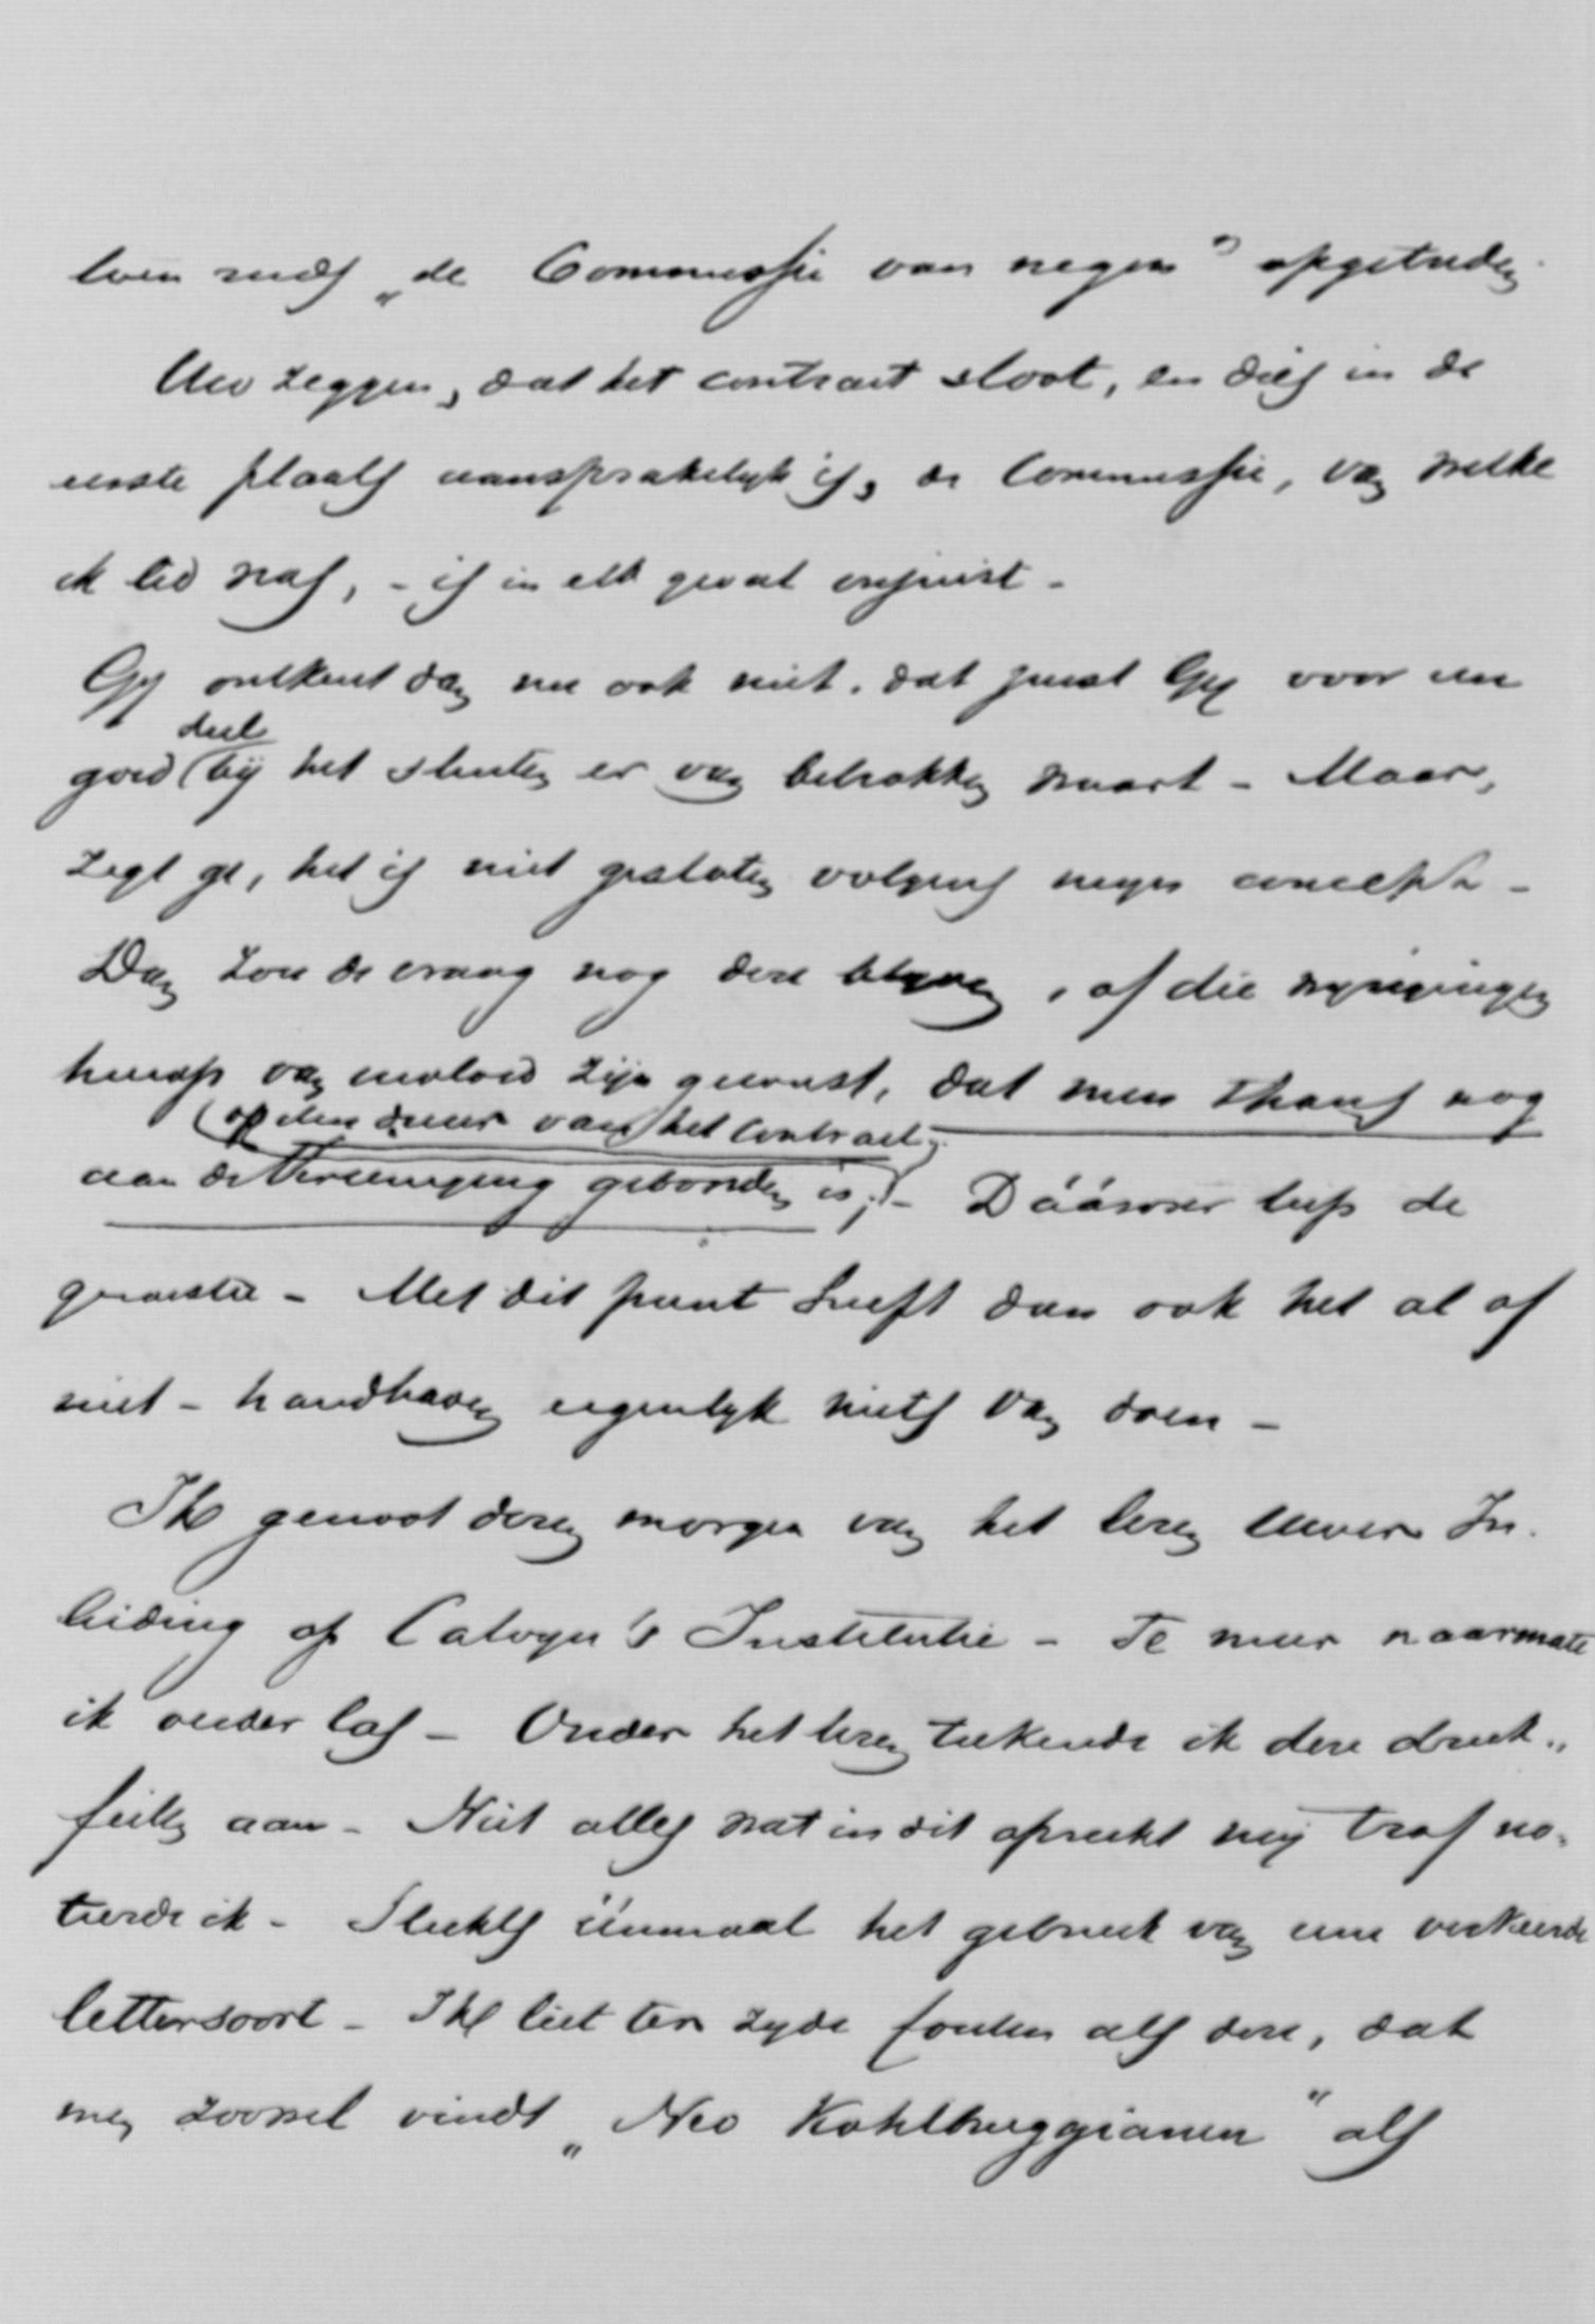 toen reeds „de Commissie van negen" opgetreden.
Uw zeggen, dat het contract sloot, en dies in de
eerste plaats aansprakelijk is, de Commissie, van welke
ik lid was, - is in elk geval onjuist -
Gij ontkent dan nu ook niet, dat juist Gij voor een
goed deel bij het sluiten er van betrokken waart - Maar,
zegt ge, het is niet gesloten volgens mijn concept -
Dan zou de vraag nog deze blijven, of die wijzigingen
hierop van invloed zijn geweest, dat men thans nog
(op den duur van het contract)
aan de Vereeniging gebonden is; - Dáárover liep de
quaestie - Met dit punt heeft dan ook het al of
niet - handhaven eigenlijk niets van doen -
Ik genoot dezen morgen van het lezen Uwer In-
leiding op Calvijn's Institutie - Te meer naarmate
ik verder las - Onder het lezen teekende ik deze druk-
feilen aan - Niet alles wat in dit opzicht mij trof no-
teerde ik - Slechts éénmaal het gebruik van eene verkeerde
lettersoort - Ik liet ter zijde fouten als deze, dat
men zoowel vindt „Neo Kohlbruggianen" als